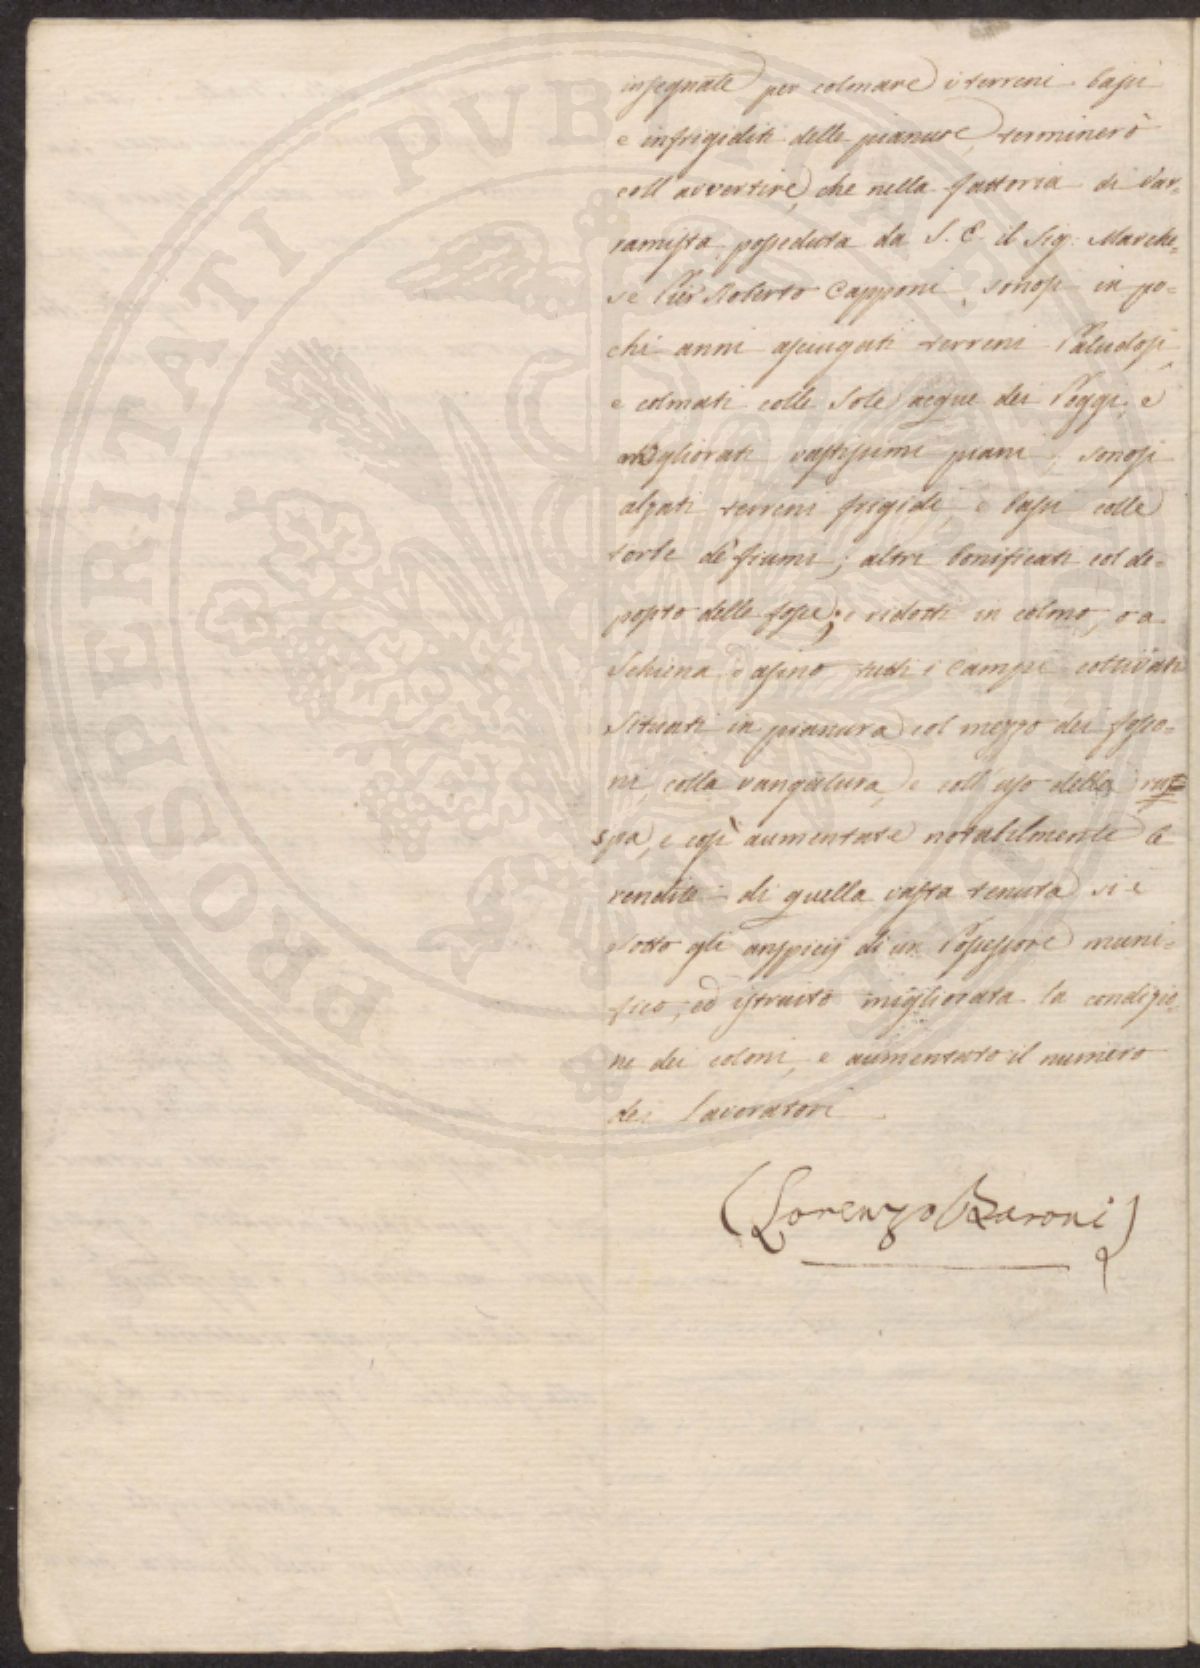 insegnate per colmare i terreni bassi
e infrigiditi delle pianure, terminerò
coll'avvertire, che nella fattoria di Var=
ramista, posseduta da S. E. il Sig: Marche=
se Pier Roberto Capponi, sonosi in po=
chi anni asciugati terreni Paludosi,
e colmati colle sole acque dei Poggi, e
migliorati vastissimi piani; sonosi
alzati terreni frigidi, e bassi colle
torbe de' fiumi; altri bonificati col de=
posto delle fosse; e ridotti in colmo, o a
Schiena d'asino tutti i Campi coltivati
situati in pianura col mezzo dei fosso=
ni, colla vangatura, e coll'uso della rus=
spa, e così aumentate notabilmente le
rendite di quella vasta tenuta si è
sotto gli auspicij di un Possessore muni=
fico, ed istruito migliorata la condizio=
ne dei coloni, e aumentato il numero
dei Lavoratori.
(Lorenzo Baroni)
PROSPERITATI PVBLICAE